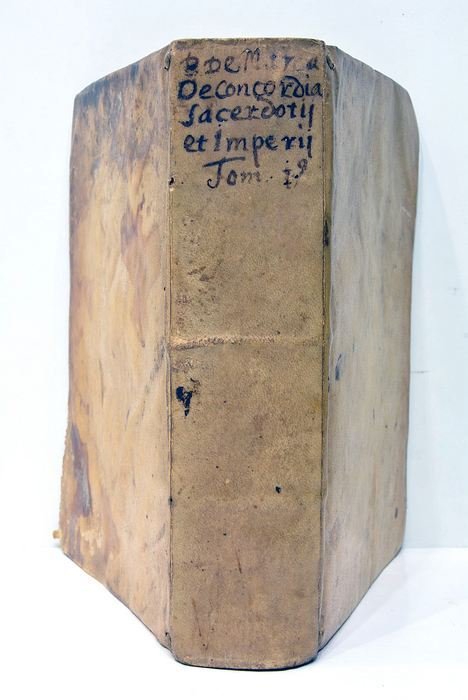 De Marca
De concordia
Sacerdotij
et Imperij
Tom. 1º